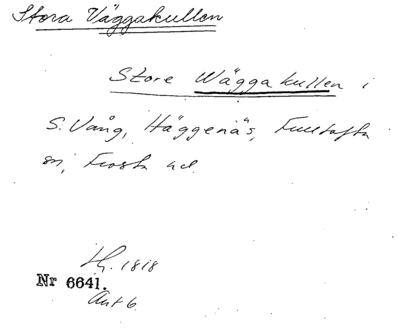 Stora Väggakullen
Store Wäggakullen i
S. Vång, Häggenäs, Fulltofta
sn, Frosta hd.
Hy. 1818
Nr 6641.
Akt 6.